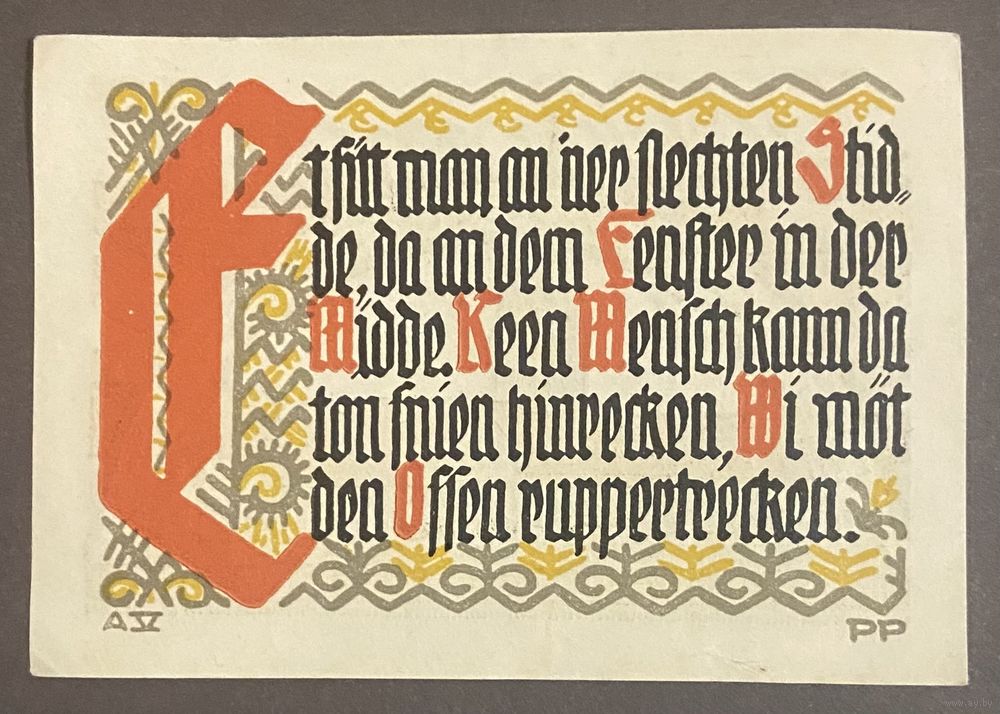 Et sitt man an 'ner slechten Stid=
de, da an dem Fenster in der
Midde. Keen Mensch kann da
ton snien hinrecken, Wi möt
den Ossen ruppertrecken.
AV PP
www.ay.by